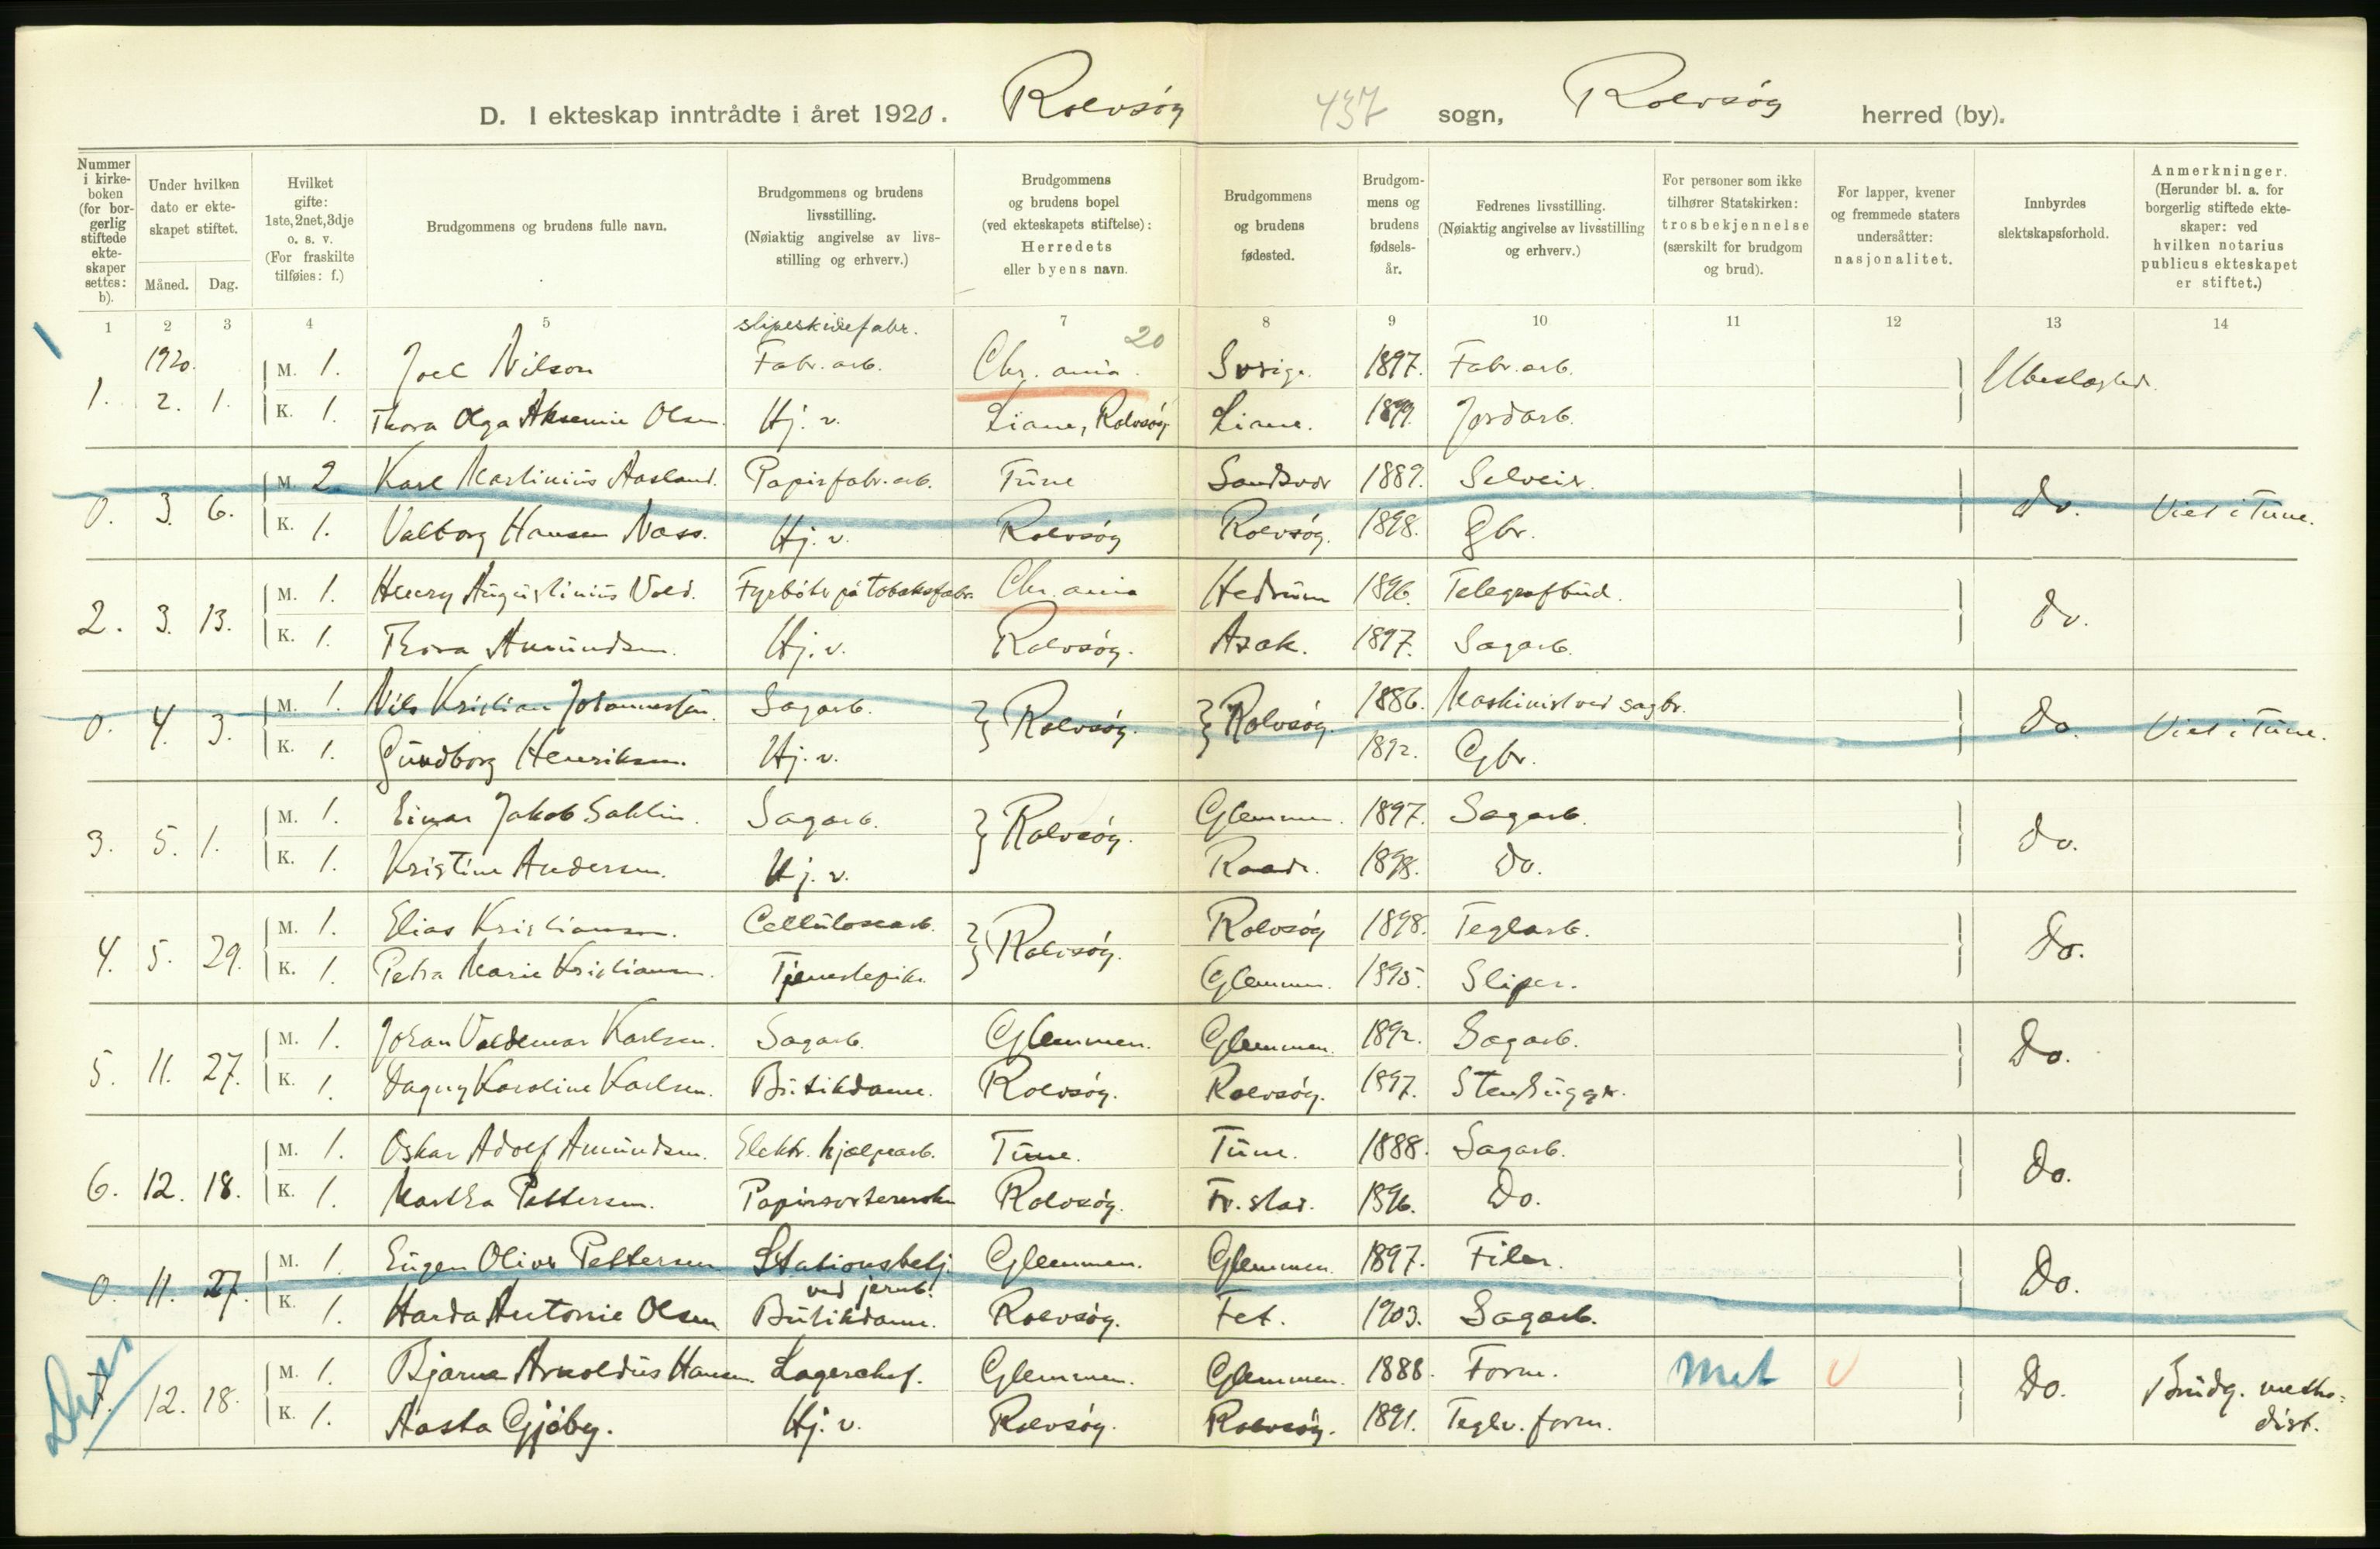 D. I ekteskap inntrådte i året 1920. Rolvsøy 437 sogn, Rolvsøy herred (by).
Nummer i kirke-boken (for bor-gerlig stiftede ekte-skaper settes: b).
Under hvilken dato er ekte-skapet stiftet.
Måned. Dag.
Hvilket gifte: 1ste, 2net, 3dje o. s. v. (For fraskilte tilføies: f.)
Brudgommens og brudens fulle navn.
Brudgommens og brudens livsstilling. (Nøiaktig angivelse av livs-stilling og erhverv.)
Brudgommens og brudens bopel (ved ekteskapets stiftelse): Herredets eller byens navn.
Brudgommens og brudens fødested.
Brudgom-mens og brudens fødsels-år.
Fedrenes livsstilling. (Nøiaktig angivelse av livsstilling og erhverv.)
For personer som ikke tilhører Statskirken: trosbekjennelse (særskilt for brudgom og brud).
For lapper, kvener og fremmede staters undersåtter: nasjonalitet.
Innbyrdes slektskapsforhold.
Anmerkninger. (Herunder bl. a. for borgerlig stiftede ekte-skaper: ved hvilken notarius publicus ekteskapet er stiftet.)
1 2 3 4 5 7 8 9 10 11 12 13 14
slipeskivefabr. 20
1920.
M. 1. Joel Nilson Fabr. arb. Chr. ania. Sverige. 1897. Fabr. arb. Ubeslægted.
1. 2. 1.
K. 1. Thora Olga Aksemie Olsen. Hj. v. Liane, Rolvsøy Liane. 1899. Jordarb.
M. 2 Karl Martinius Aasland. Papirfabr. arb. Tune Sandsvær 1889. Selveier.
0. 3. 6. do. Viet i Tune.
K. 1. Valborg Hansen Næss. Hj. v. Rolvsøy Rolvsøy. 1898. Gbr.
M. 1. Henry Augustinius Vold. Fyrbøter på tobaksfabr. Chr. ania Hedrum 1896. Telegrafbud.
2. 3. 13. do.
K. 1. Thora Amundsen. Hj. v. Rolvsøy. Asak. 1897. Sagarb.
M. 1. Nils Kristian Johannessen. Sagarb. } Rolvsøy. } Rolvsøy. 1886. Maskinist ved sagbr.
0. 4. 3. do. Viet i Tune.
K. 1. Gundborg Henriksen. Hj. v. 1892. Gbr.
M. 1. Einar Jakob Sahlin. Sagarb. } Rolvsøy. Glemmen. 1897. Sagarb.
3. 5. 1. do.
K. 1. Kristine Andersen. Hj. v. Raade. 1898. do.
M. 1. Elias Kristiansen. Cellulosearb. } Rolvsøy. Rolvsøy 1898. Teglarb.
4. 5. 29. do.
K. 1. Petra Marie Kristiansen. Tjenestepike. Glemmen. 1895. Sliper.
M. 1. Johan Valdemar Karlsen. Sagarb. Glemmen. Glemmen. 1892. Sagarb.
5. 11. 27. Do.
K. 1. Dagny Karoline Karlsen. Butikdame. Rolvsøy. Rolvsøy. 1897. Stenhugger.
M. 1. Oskar Adolf Amundsen. Elektr. hjælpearb. Tune. Tune. 1888. Sagarb.
6. 12. 18. Do.
K. 1. Martha Pettersen. Papirsortererske Rolvsøy. Fr. stad. 1896. Do.
M. 1. Eugen Oliver Pettersen Stationsbetj. ved jernb. Glemmen. Glemmen. 1897. Filer.
0. 11. 27. Do.
K. 1. Harda Antonie Olsen Butikdame. Rolvsøy. Fet. 1903. Sagarb.
M. 1. Bjarne Arnoldus Hansen. Lagerchef. Glemmen. Glemmen. 1888. Form. Met
7. 12. 18. Do. Brudg. metho-
dist.
K. 1. Aasta Gjøby. Hj. v. Rolvsøy. Rolvsøy. 1891. Teglv. form.